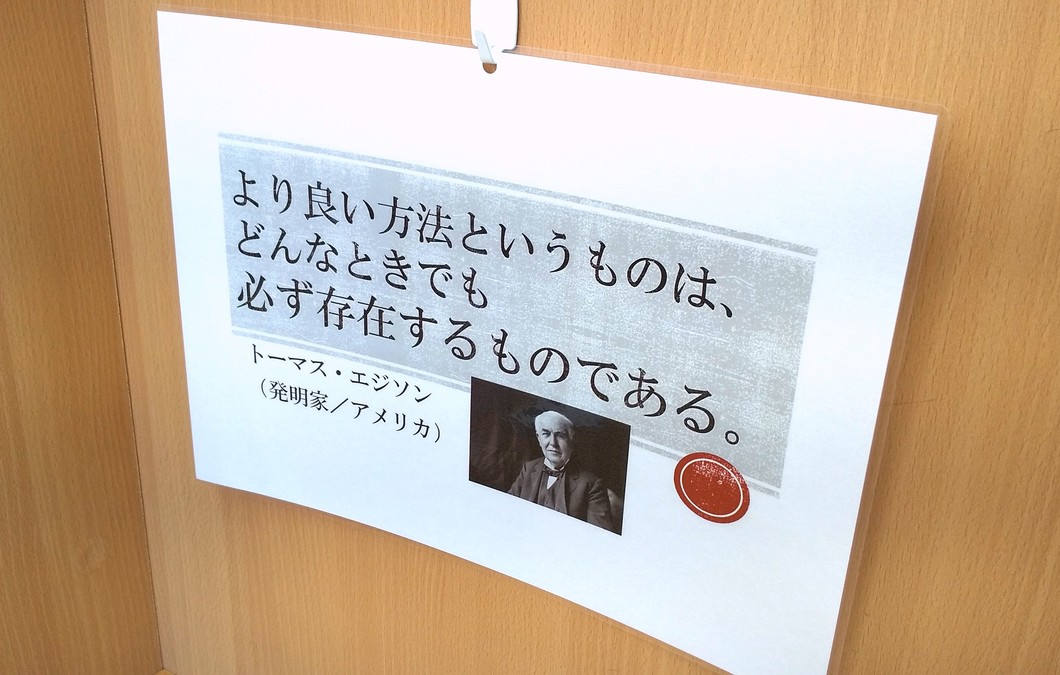 より良い方法というものは、
どんなときでも
必ず存在するものである。
トーマス・エジソン
（発明家／アメリカ）